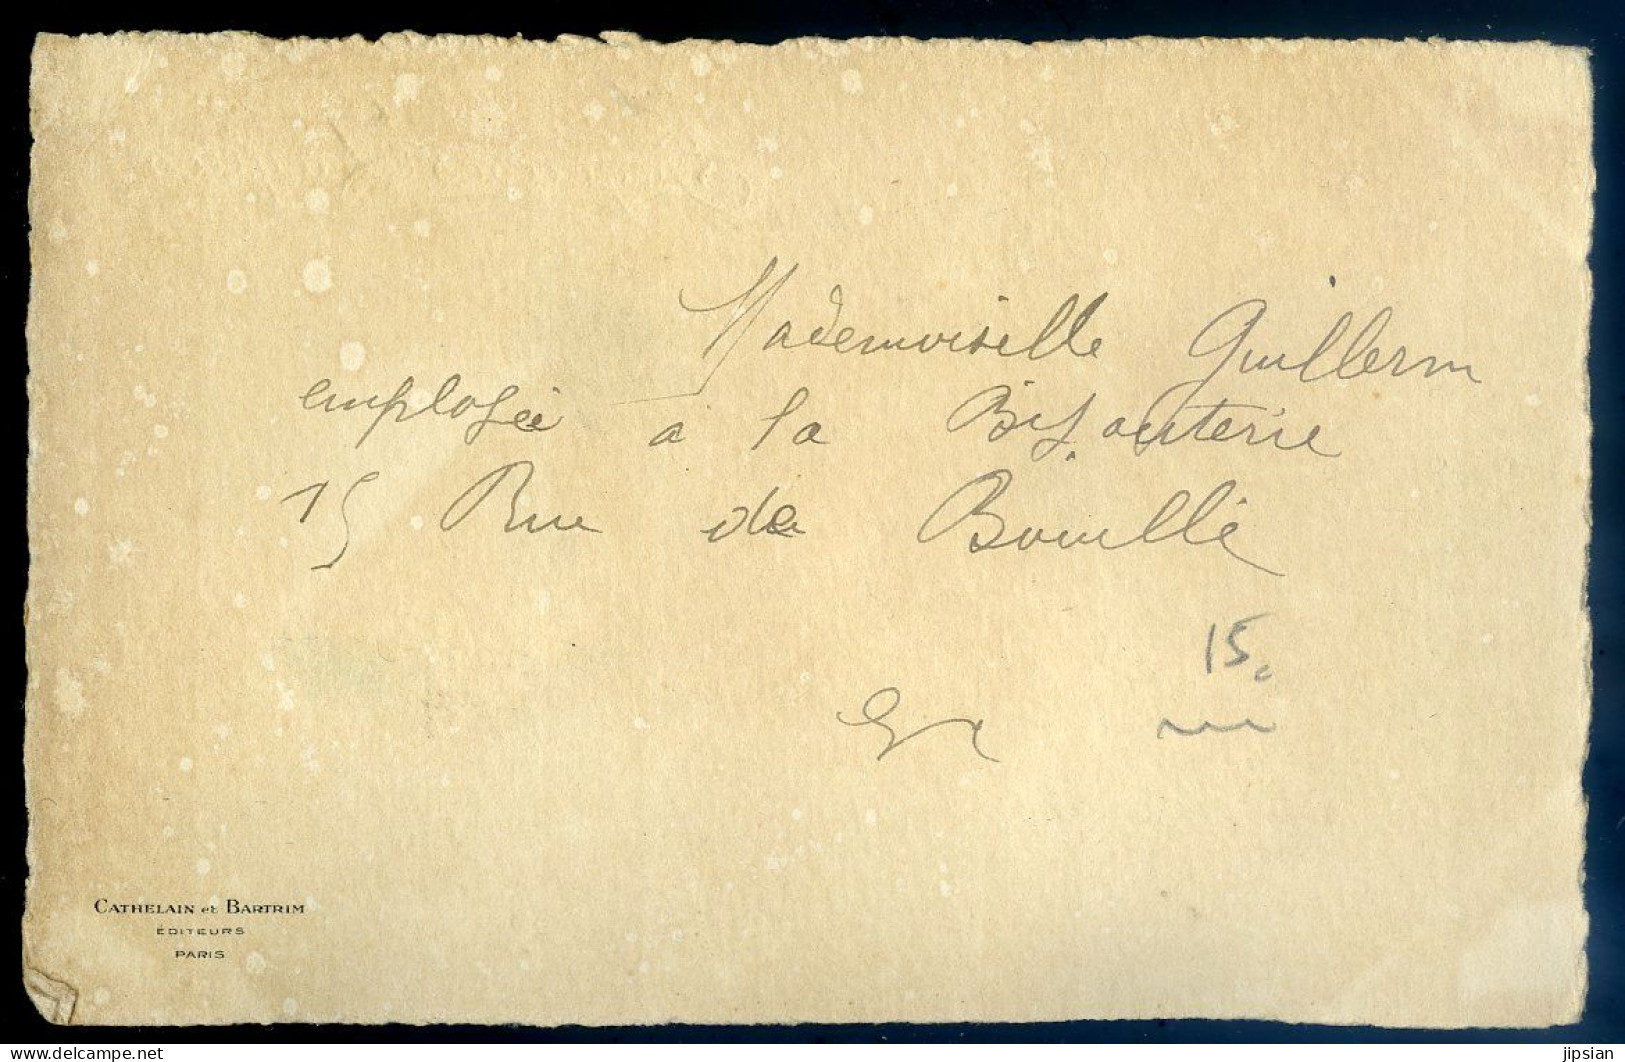 Mademoiselle Guillerm
employée à la Bijouterie
15 Rue de Bouillé
15
CATHELAIN et BARTRIM
ÉDITEURS
PARIS
delcampe.net
jipsian